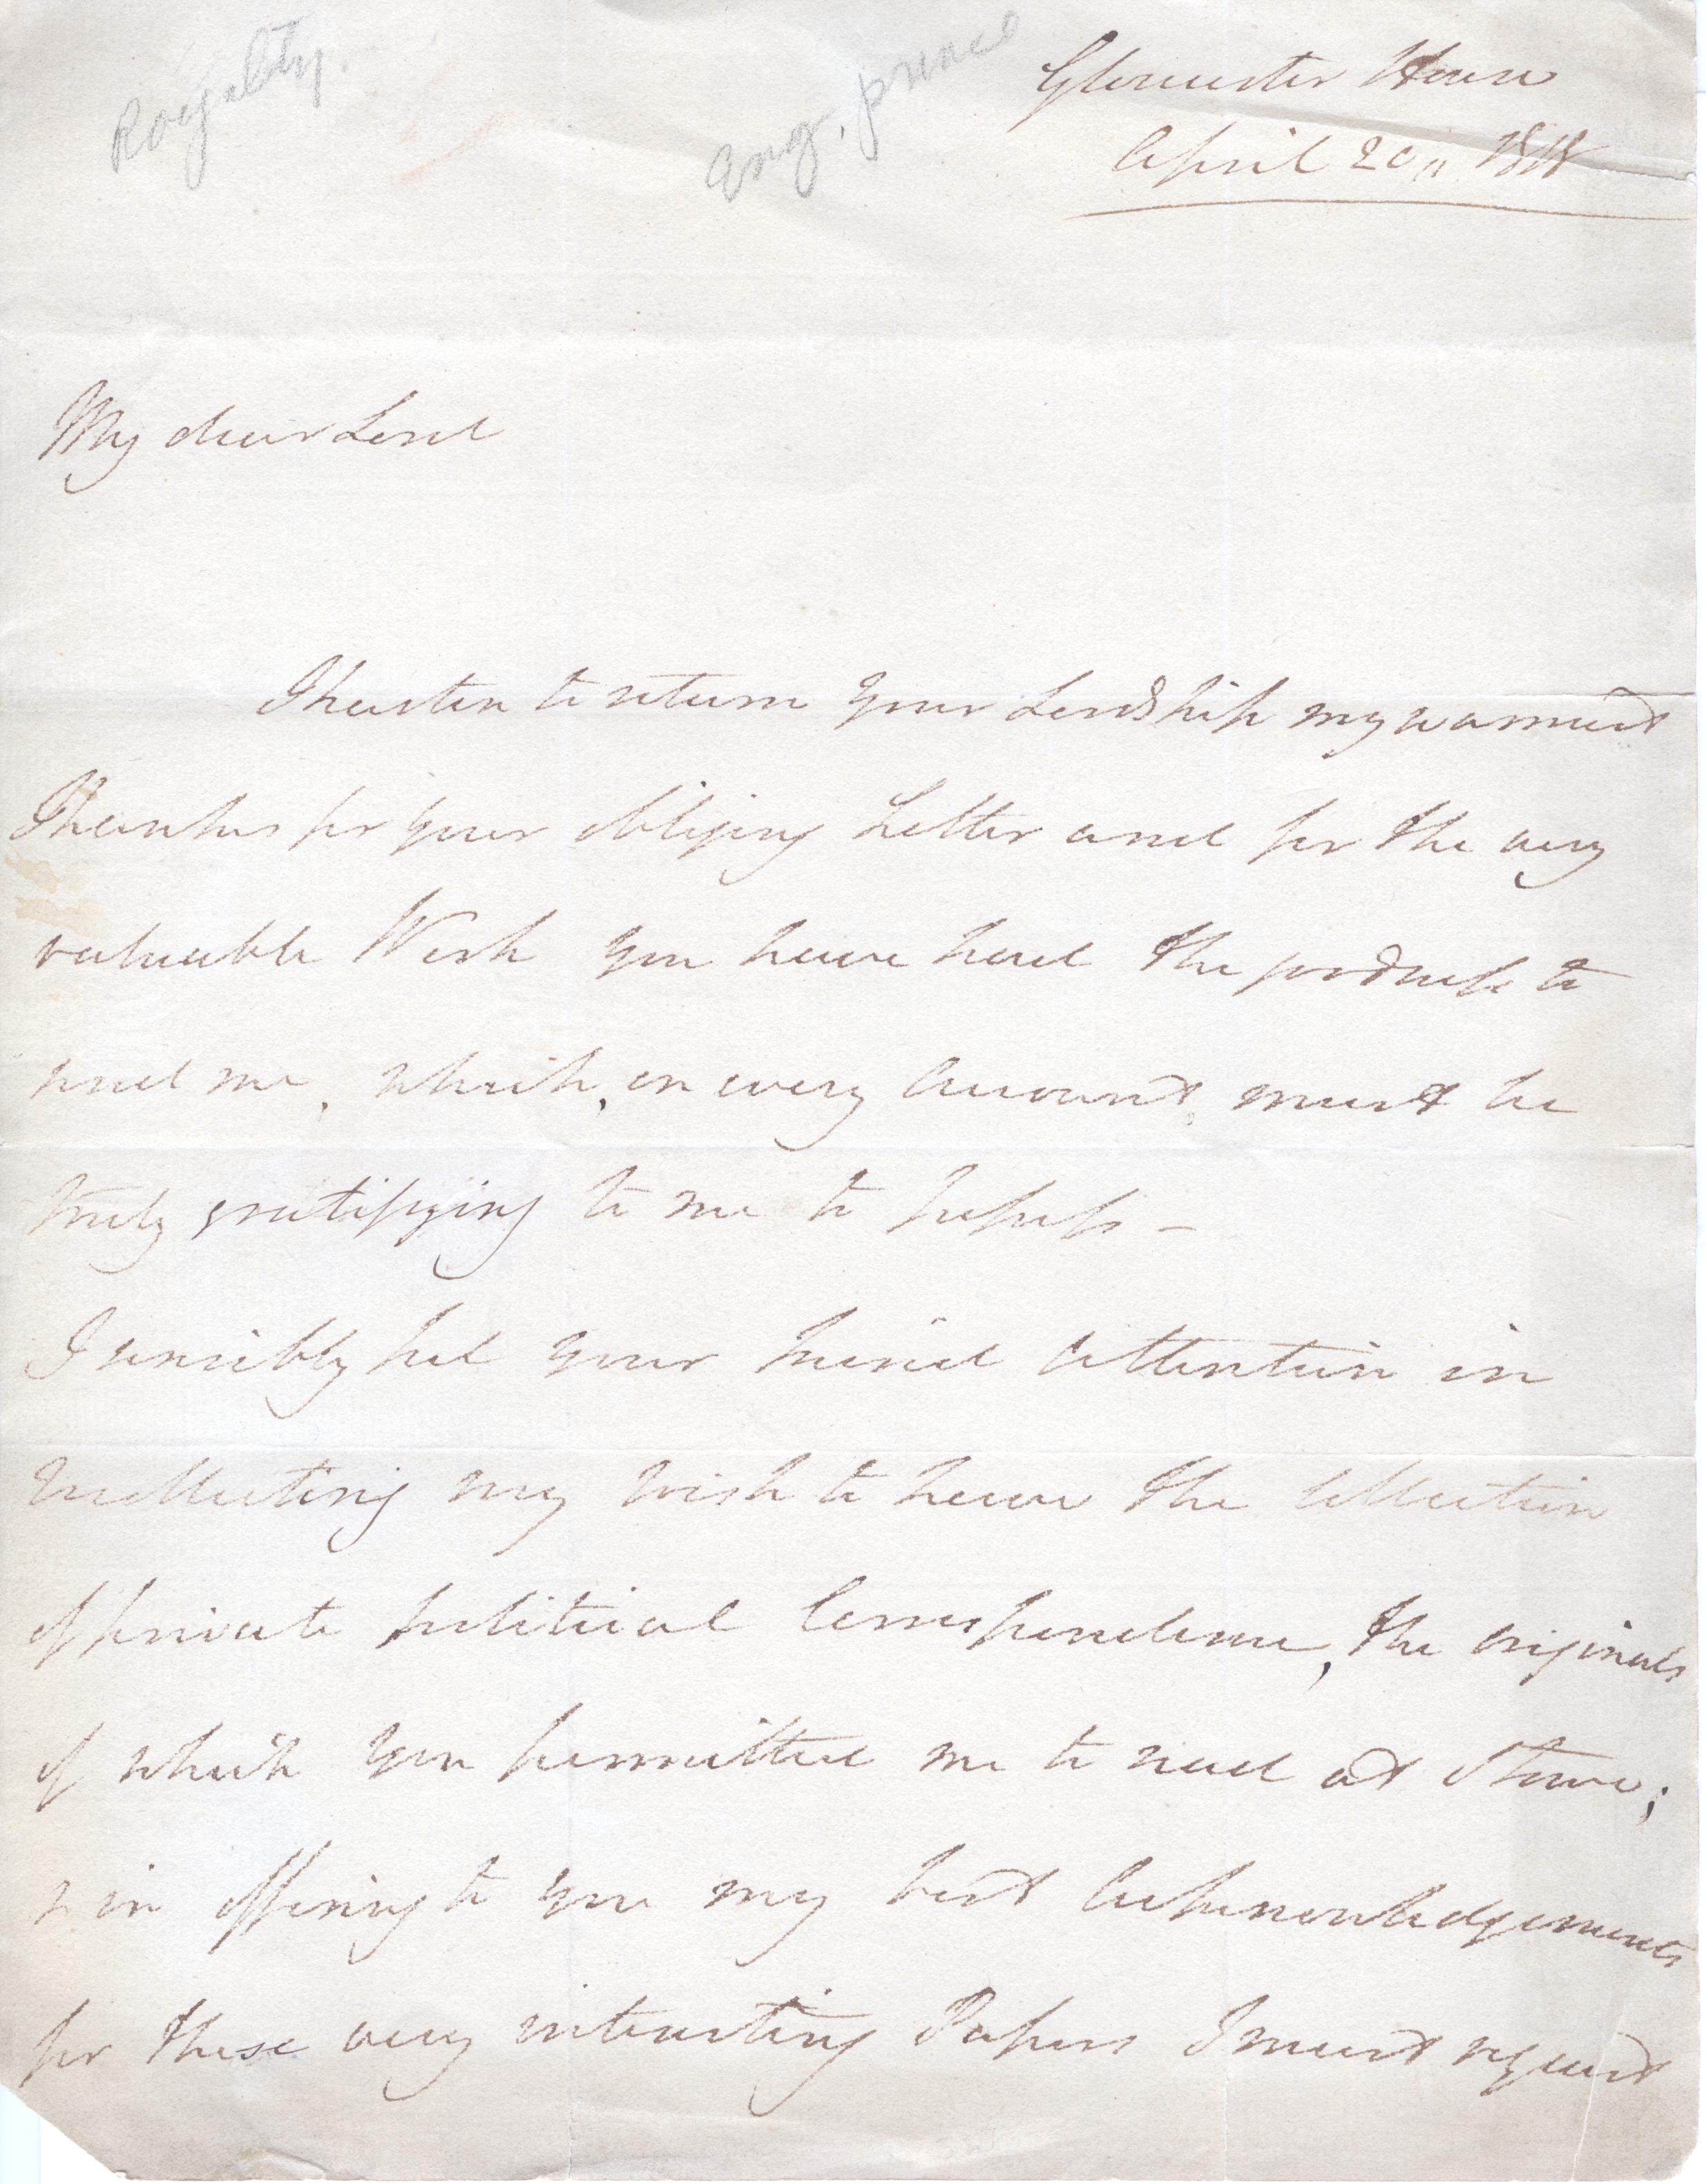 Royalty.
Eng. prince
Gloucester House
April 20,, 1818
My dear Lord
I hasten to return your Lordship my warmest
Thanks for your obliging Letter and for the very
valuable Work you have had the goodness to
send me, which, on every Account, must be
truly gratifying to me to possess –
I sensibly feel your kind Attention in
recollecting my wish to have the Collection
of private political Correspondence, the originals
of which you permitted me to read at Stowe;
& in offering to you my best Acknowledgements
for these very interesting Papers I must request